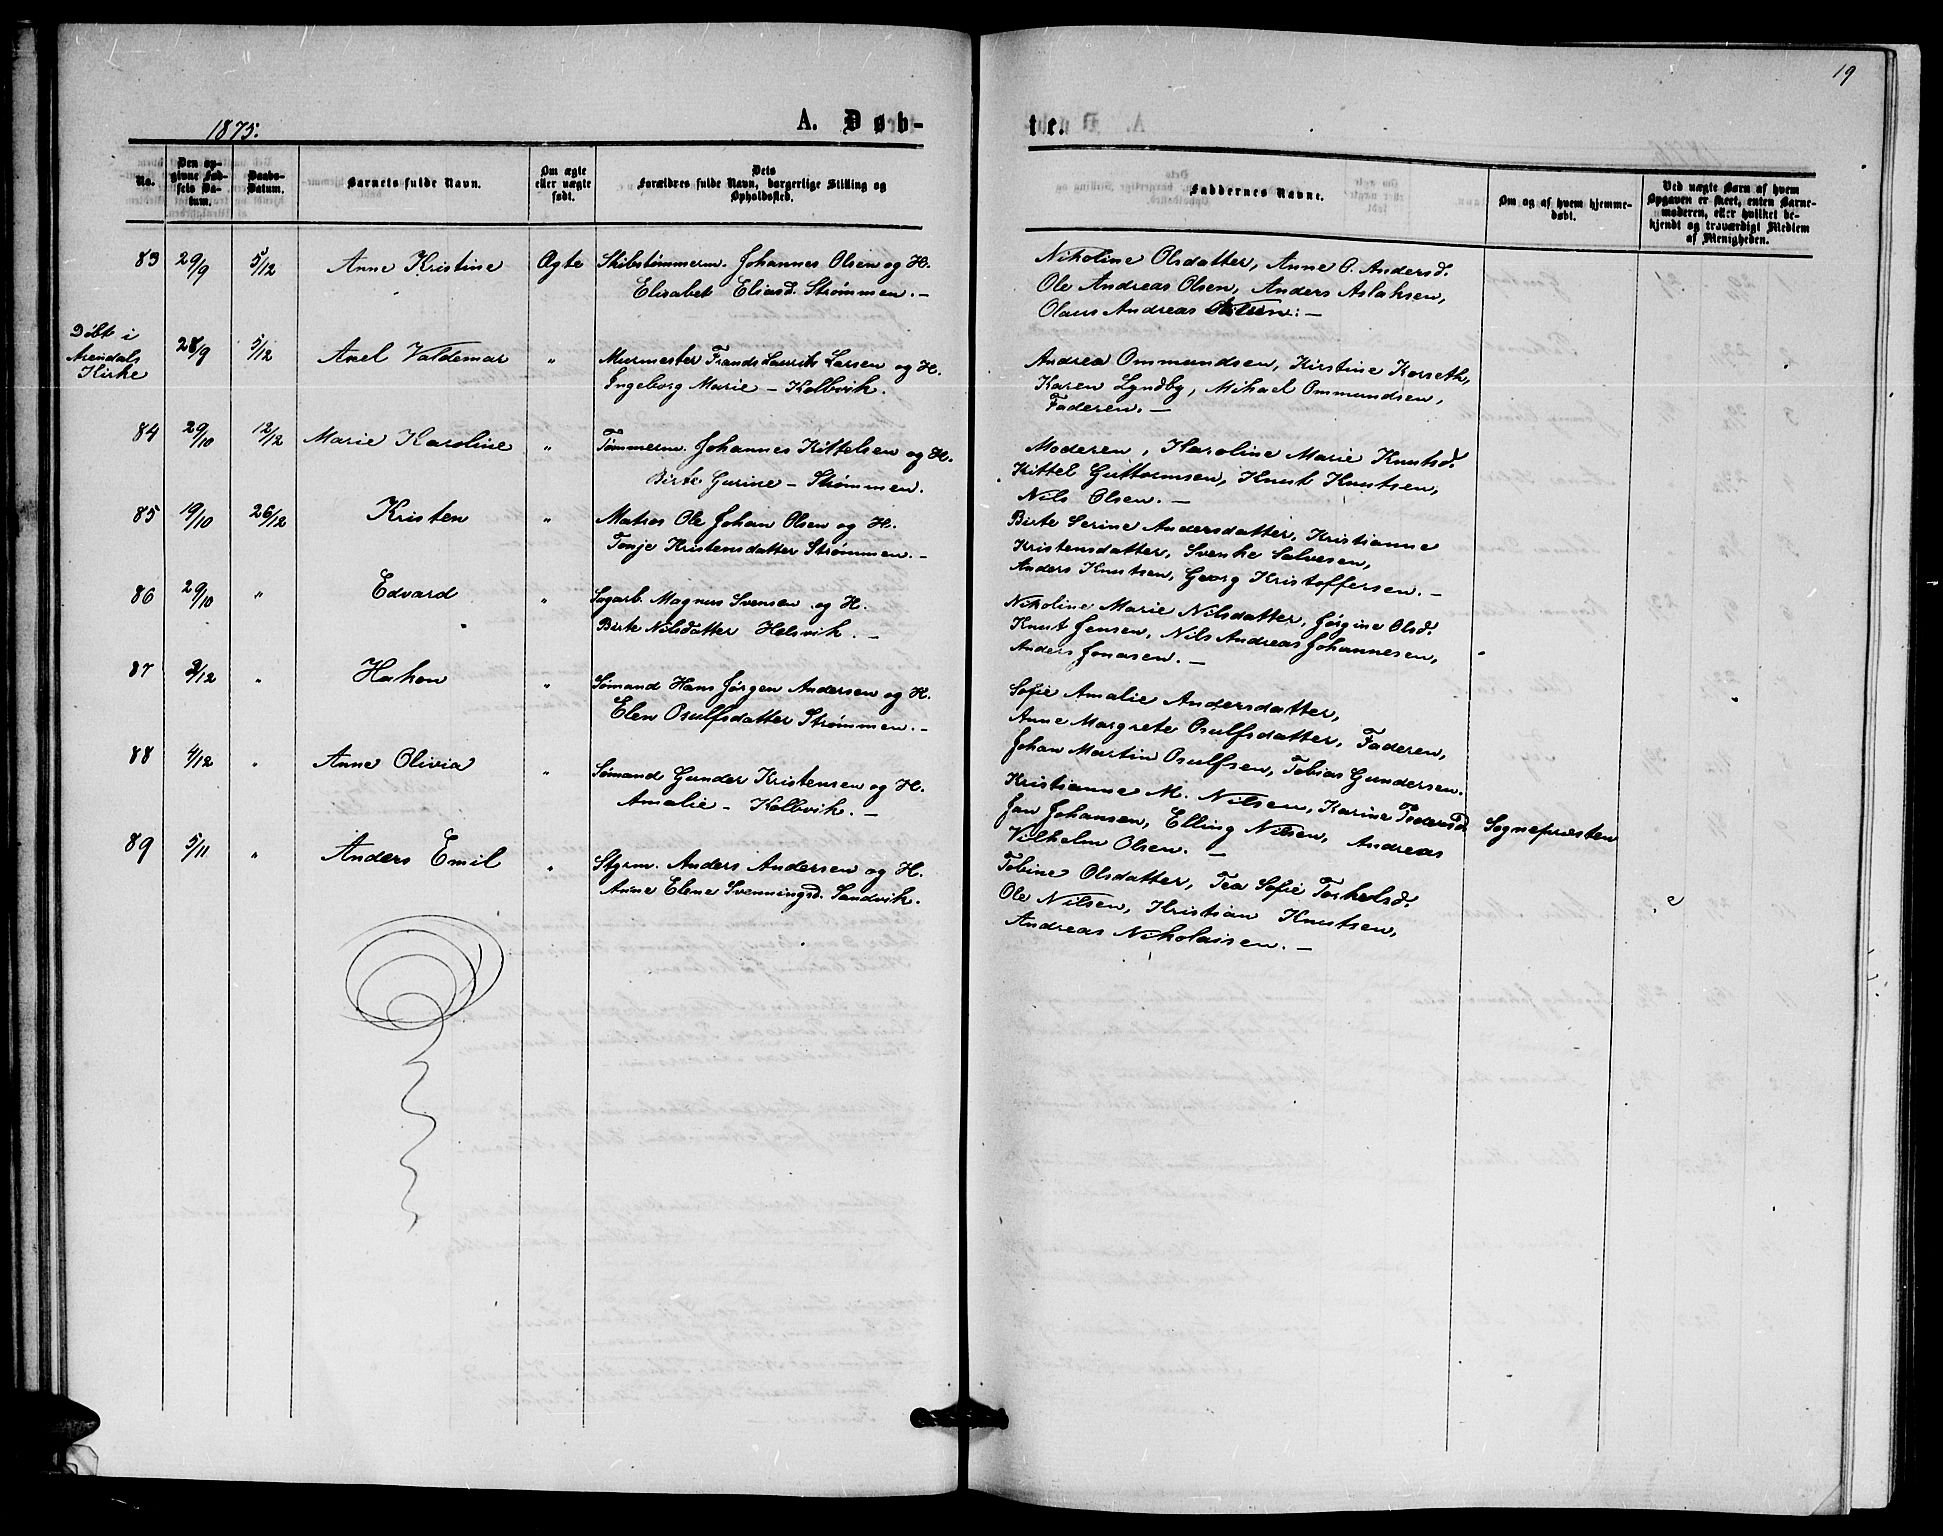 19
1875.
A. Døb-
te.
No.
Den op-
givne Fød-
sels Da-
tum.
Daabs-
Datum.
Barnets fulde Navn.
Om ægte
eller uægte
født.
Dets
Forældres fulde Navn, borgerlige Stilling og
Opholdssted.
Faddernes Navne.
Om og af hvem hjemme-
døbt.
Ved uægte Børn af hvem
Opgaven er skeet, enten Barne-
moderen, eller hvilket be-
kjendt og troværdigt Medlem
af Menigheden.
83 29/9 5/12 Anne Kristine Ægte Skibstømmerm. Johannes Olsen og H.
Elisabet Eliasd. Strømmen. –
Nikoline Olsdatter, Anne O. Andersd.
Ole Andreas Olsen, Anders Aslaksen,
Olaus Andreas
Døbt i
Arendals
Kirke
28/9 5/12 Axel Valdemar „ Murmester Frands Laurits Larsen og H.
Ingeborg Marie – Kolbvik.
Andrea Ommundsen, Kirstine Korseth,
Karen Lyndby, Mikael Ommundsen,
Faderen. –
84 29/10 12/12 Marie Karoline „ Tømmerm. Johannes Kittelsen og H.
Birte Gurine – Strømmen.
Moderen, Karoline Marie Knutsd.
Kittel Guttormsen, Knut Knutsen,
Nils Olsen. –
85 19/10 26/12 Kristen „ Matros Ole Johan Olsen og H.
Tonje Kristensdatter Strømmen. –
Birte Serine Andersdatter, Kristianne
Kristensdatter, Svenke Salvesen,
Anders Knutsen, Georg Kristoffersen. –
86 29/10 „ Edvard „ Sagarb. Magnus Svensen og H.
Birte Nilsdatter Helsvik. –
Nikoline Marie Nilsdatter, Jørgine Olsd.
Knut Jensen, Nils Andreas Johannesen,
Anders Jonasen. –
87 2/12 „ Hakon „ Sømand Hans Jørgen Andersen og H.
Elen Osulfsdatter Strømmen. –
Sofie Amalie Andersdatter,
Anne Margrete Osulfsdatter, Faderen,
Johan Martin Osulfsen, Tobias Gundersen.
88 4/12 „ Anne Olivia „ Sømand Gunder Kristensen og H.
Amalie – Kolbvik. –
Kristianne M. Nilsen, Karine Pedersd.
Jan Johansen, Elling Nilsen, Andreas
Vilhelm Olsen. –
Sognepræsten
89 5/11 „ Anders Emil „ Styrm. Anders Andersen og H.
Anne Elene Svenningsd. Sandvik.
Tobine Olsdatter, Tea Sofie Torkelsd.
Ole Nilsen, Kristian Knutsen,
Andreas Nikolaisen. –